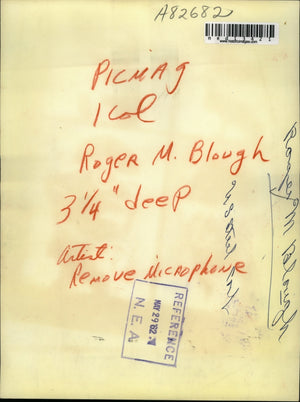 A82682
PICMAG
1 Col
Roger M. Blough
3 1/4" deep
Artist:
Remove Microphone
REFERENCE
MAY 29 '62
N. E. A.
Roger M. Blough